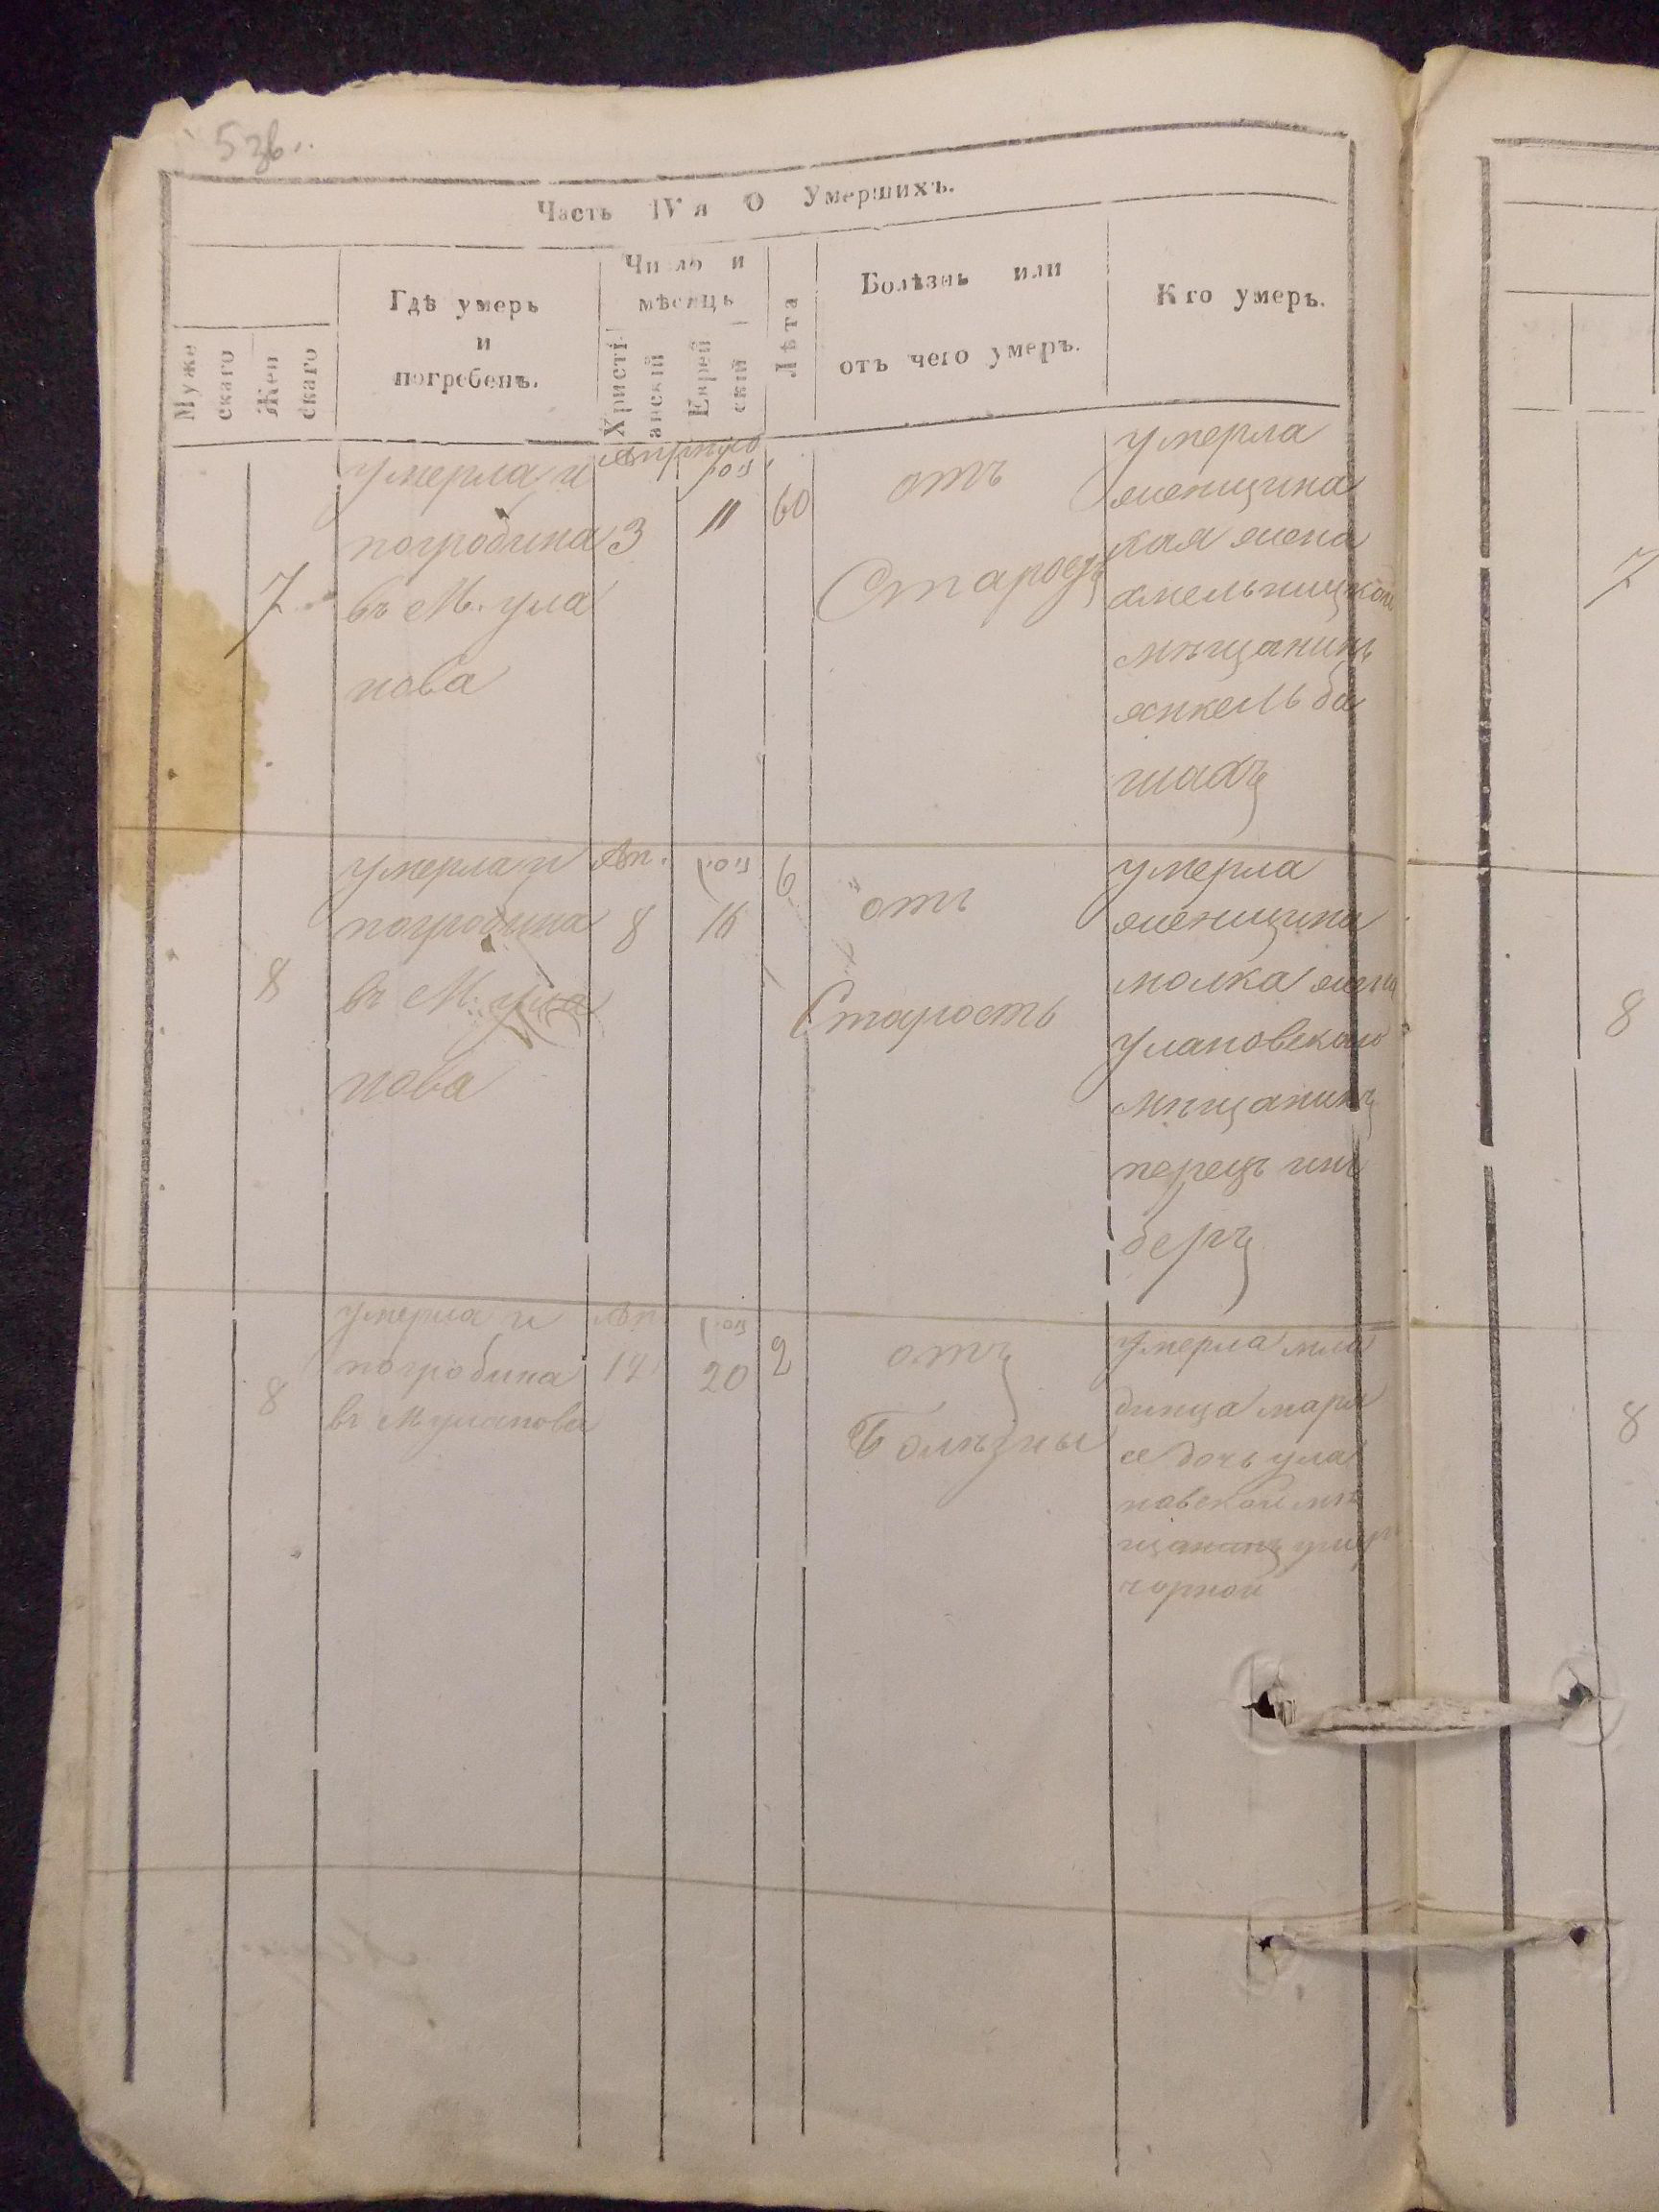 53в.
Часть IV я О Умершихъ.
Муже
скаго
Жен
скаго
Гдѣ умеръ
и
погребенъ.
Число и
мѣсяцъ
Христі
анскій
Еврей
скій
Лѣта
Болѣзнь или
отъ чего умеръ.
Кто умеръ.
7
умерла и
погробина
въ М. ула
нова
Апрѣль
3
ניסן
11
60
отъ
умерла
женщина
хая жена
хмельницкой
мѣщанинъ
янкель ба
шахъ
7
8
умерла и
погробина
въ М. ула
нова
Ап.
8
ניסן
16
6
отъ
Старость
умерла
женщина
малка жена
улановскаго
мѣщанинъ
перецъ
беръ
8
8
умерла и
погробина
въ М уланова
Ап
12
ניסן
20
2
отъ
Болѣзны
умерла мла
динца маря
се дочь ула
новской мѣ
щанинъ
чорной
8